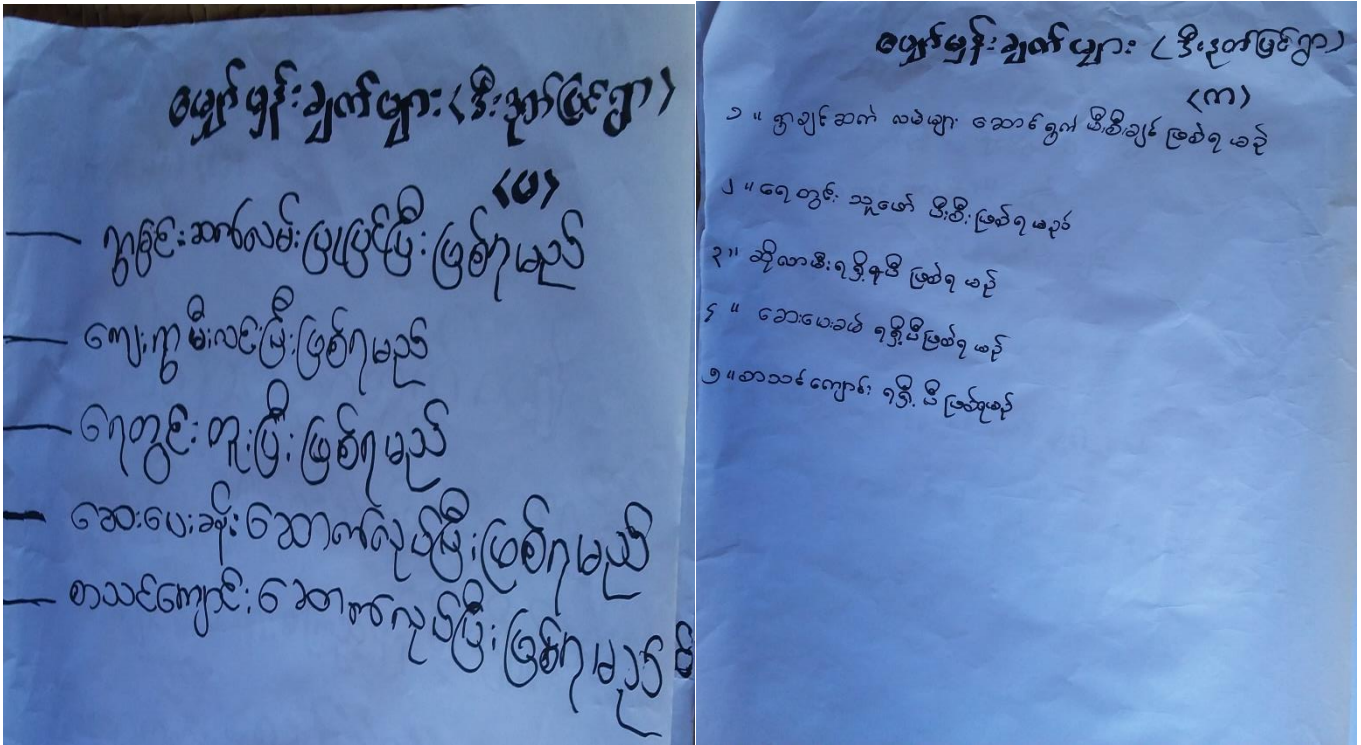 မျှော်မှန်းချက်များ (ဒီးဒုတ်ပြင်ရွာ)
(မ)
— ရွာချင်းဆက်လမ်းပြုပြင်ပြီးဖြစ်ရမည်
— ကျေးရွာမီးလင်းပြီးဖြစ်ရမည်
— ရေတွင်းတူးပြီးဖြစ်ရမည်
— ဆေးပေးခန်းဆောက်လုပ်ပြီးဖြစ်ရမည်
— စာသင်ကျောင်းဆောက်လုပ်ပြီးဖြစ်ရမည်
မျှော်မှန်းချက်များ (ဒီးဒုတ်ပြင်ရွာ)
(က)
၁။ ရွာချင်ဆက် လမဲများ ဆောင်ရွက် ဖြစ်ရမည်
၂။ ရေတွင်း ဖြစ်ရမည်
၃။ ဆိုလာမီးရရှိ ဖြစ်ရမည်
၄။ ဆေးပေးခမ် ရရှိပီဖြစ်ရမည်
၅။ စာသင်ကျောင်း ရရှိပီဖြစ်ရမည်